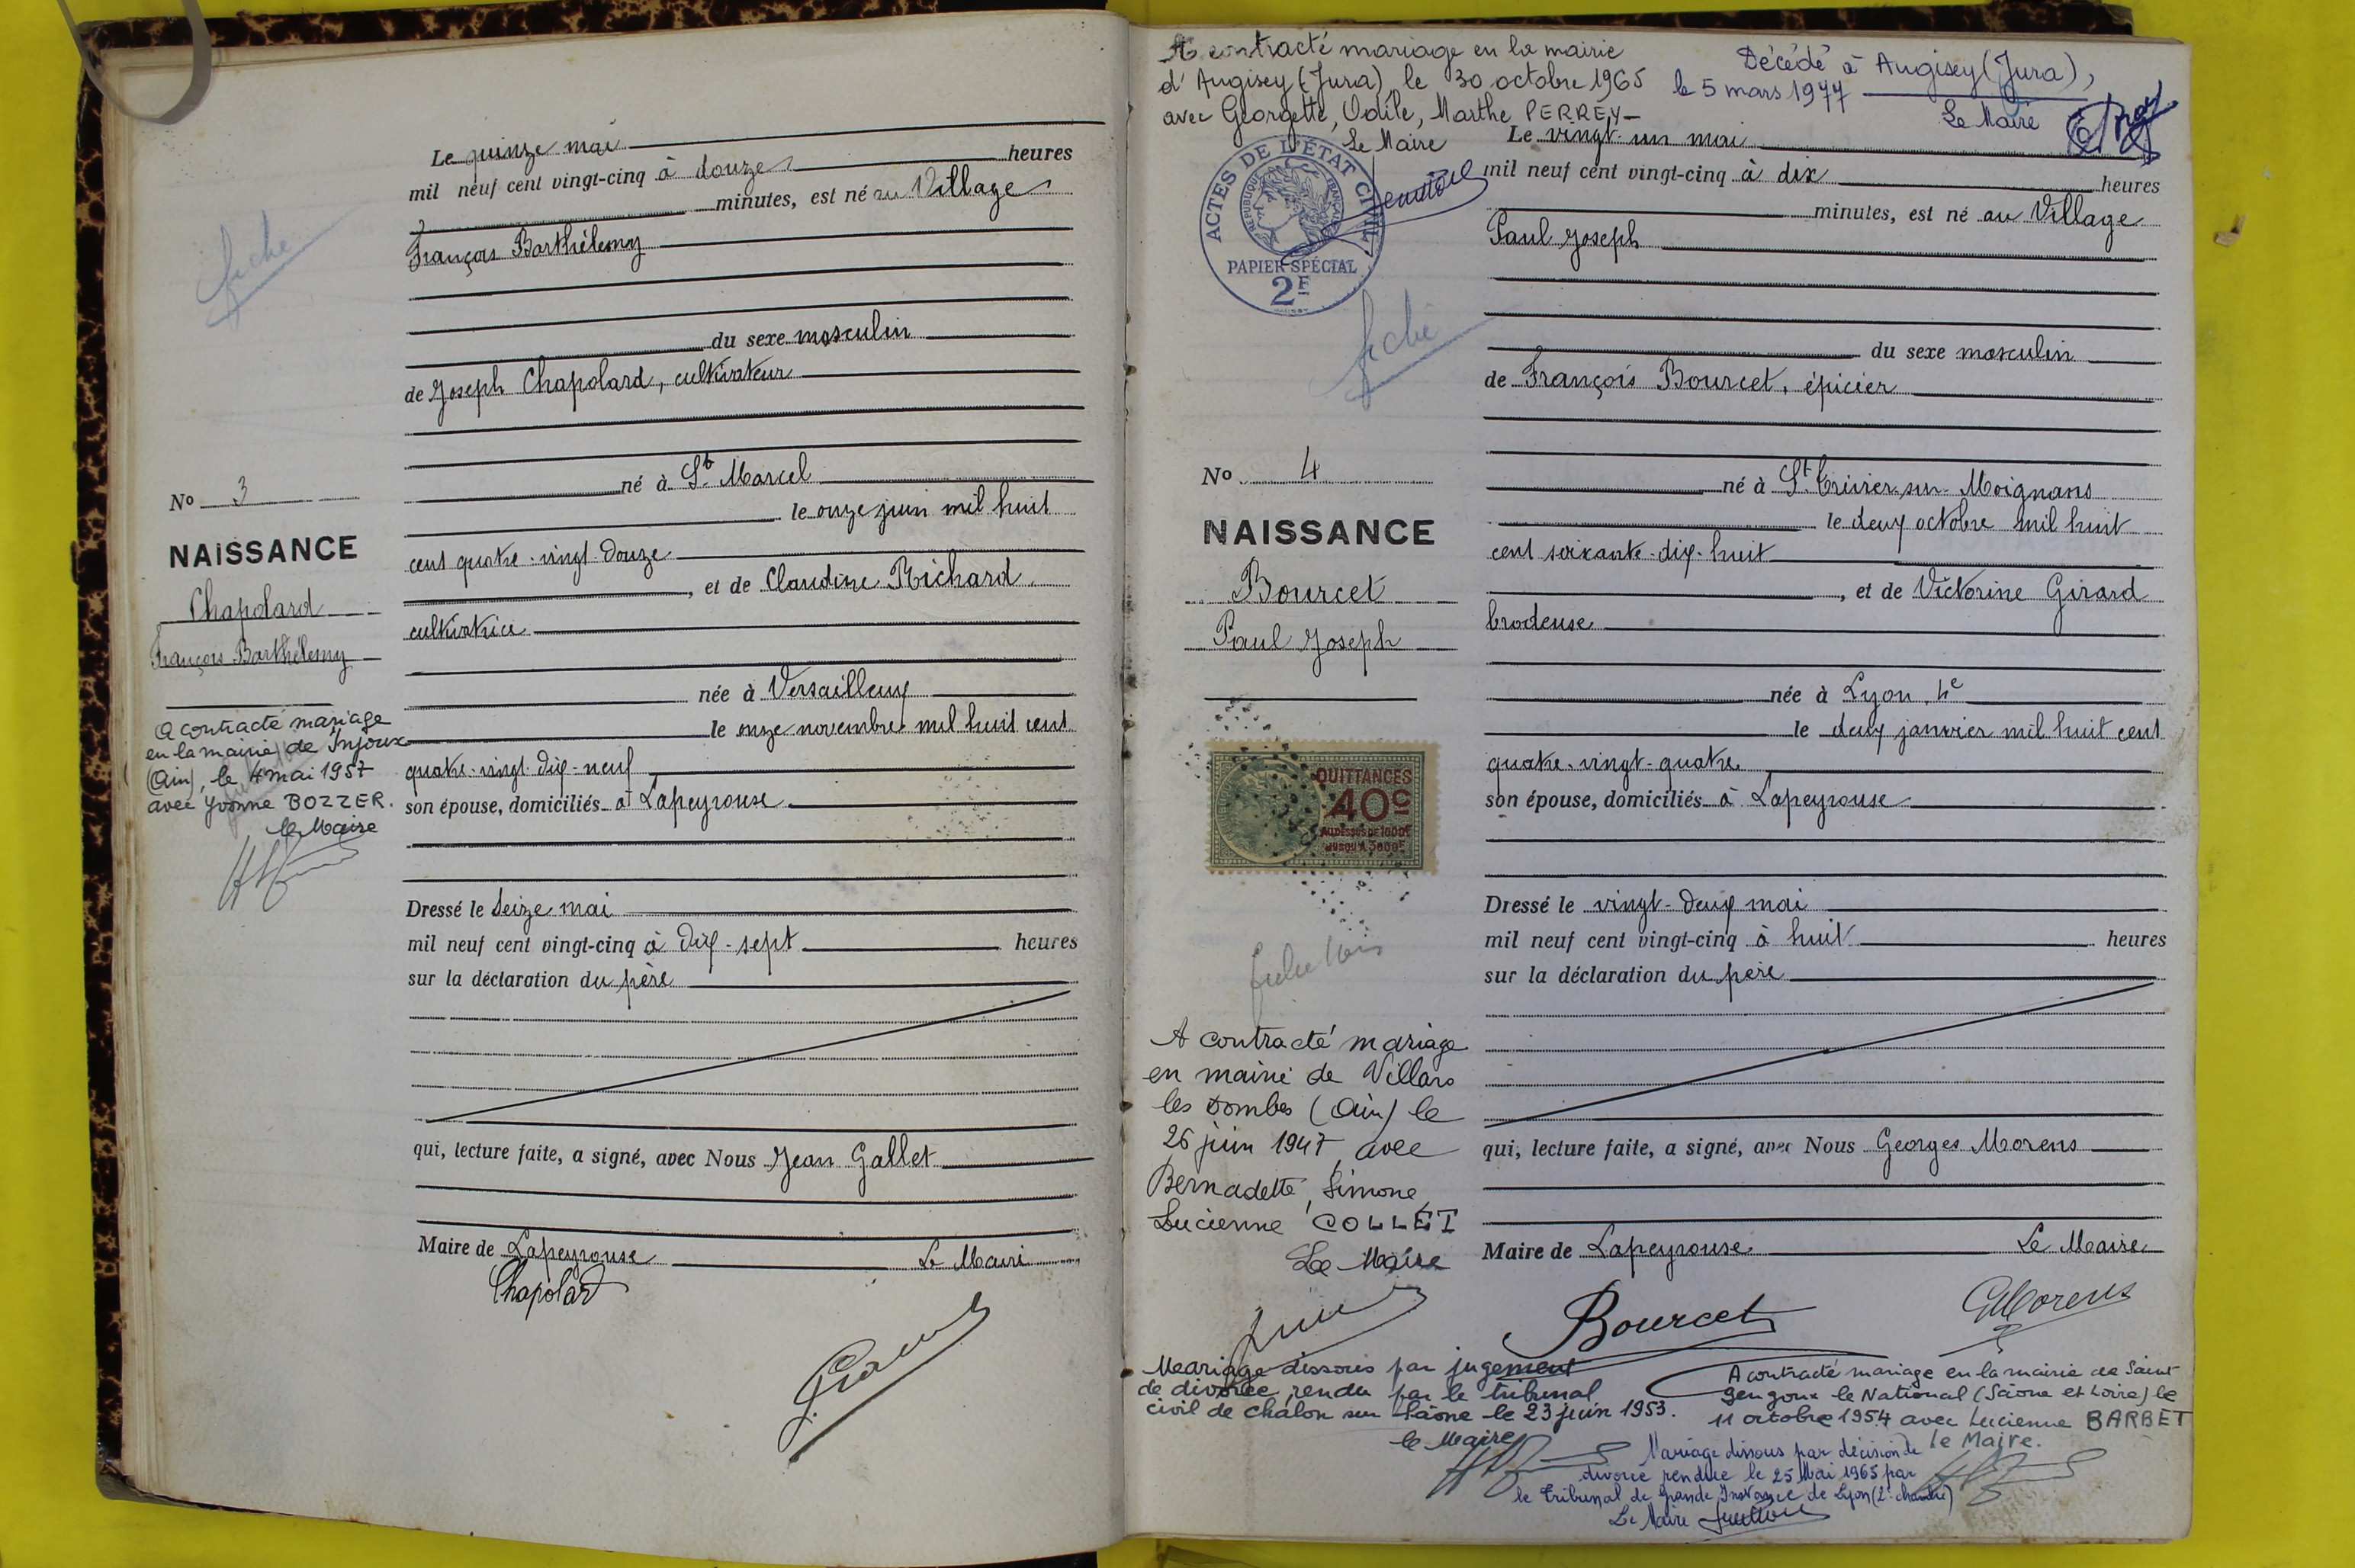 Le quinze mai
mil neuf cent vingt-cinq à douze heures
minutes, est né au Village
François Barthélemy
du sexe masculin
de Joseph Chapolard, cultivateur
né à St Marcel
le onze juin mil huit
cent quatre-vingt-douze
, et de Claudine Richard
cultivatrice
née à Versailleux
le onze novembre mil huit cent
quatre-vingt-dix-neuf
son épouse, domiciliés à Lapeyrouse
Dressé le seize mai
mil neuf cent vingt-cinq à dix-sept heures
sur la déclaration du père
qui, lecture faite, a signé, avec Nous Jean Gallet
Maire de Lapeyrouse Le Maire
Chapolard
fiche
No 3
NAISSANCE
Chapolard
François Barthélemy
A contracté mariage
en la mairie de Injoux
(Ain), le 4 mai 1957
avec Yvonne BOZZER.
le Maire
A contracté mariage en la mairie
d'Augisey (Jura), le 30 octobre 1965
avec Georgette, Odile, Marthe PERREY
Le Maire
Décédé à Augisey (Jura),
le 5 mars 1977
Le Maire
ACTES DE L'ÉTAT CIVIL
RÉPUBLIQUE FRANÇAISE
PAPIER SPÉCIAL
2F
fiche
No 4
NAISSANCE
Bourcet
Paul Joseph
QUITTANCES
40c
AU DESSUS DE 1000F
JUSQU'A 3000F
A contracté mariage
en mairie de Villars
les Dombes (Ain) le
26 juin 1947 avec
Bernadette, Simone,
Lucienne COLLET
Le Maire
Le vingt-un mai
mil neuf cent vingt-cinq à dix heures
minutes, est né au Village
Paul Joseph
du sexe masculin
de François Bourcet, épicier
né à St Trivier-sur-Moignans
le deux octobre mil huit
cent soixante-dix-huit
, et de Victorine Girard
brodeuse
née à Lyon 4e
le deux janvier mil huit cent
quatre-vingt-quatre
son épouse, domiciliés à Lapeyrouse
Dressé le vingt-deux mai
mil neuf cent vingt-cinq à huit heures
sur la déclaration du père
qui, lecture faite, a signé, avec Nous Georges Morens
Maire de Lapeyrouse Le Maire
Bourcet
GMorens
Mariage dissous par jugement
de divorce rendu par le tribunal
civil de Chalon sur Saône le 23 juin 1953.
le Maire
A contracté mariage en la mairie de Saint
Gengoux le National (Saône et Loire) le
11 octobre 1954 avec Lucienne BARBET
le Maire.
Mariage dissous par décision de
divorce rendue le 25 Mai 1965 par
le Tribunal de Grande Instance de Lyon (2e chambre)
Le Maire